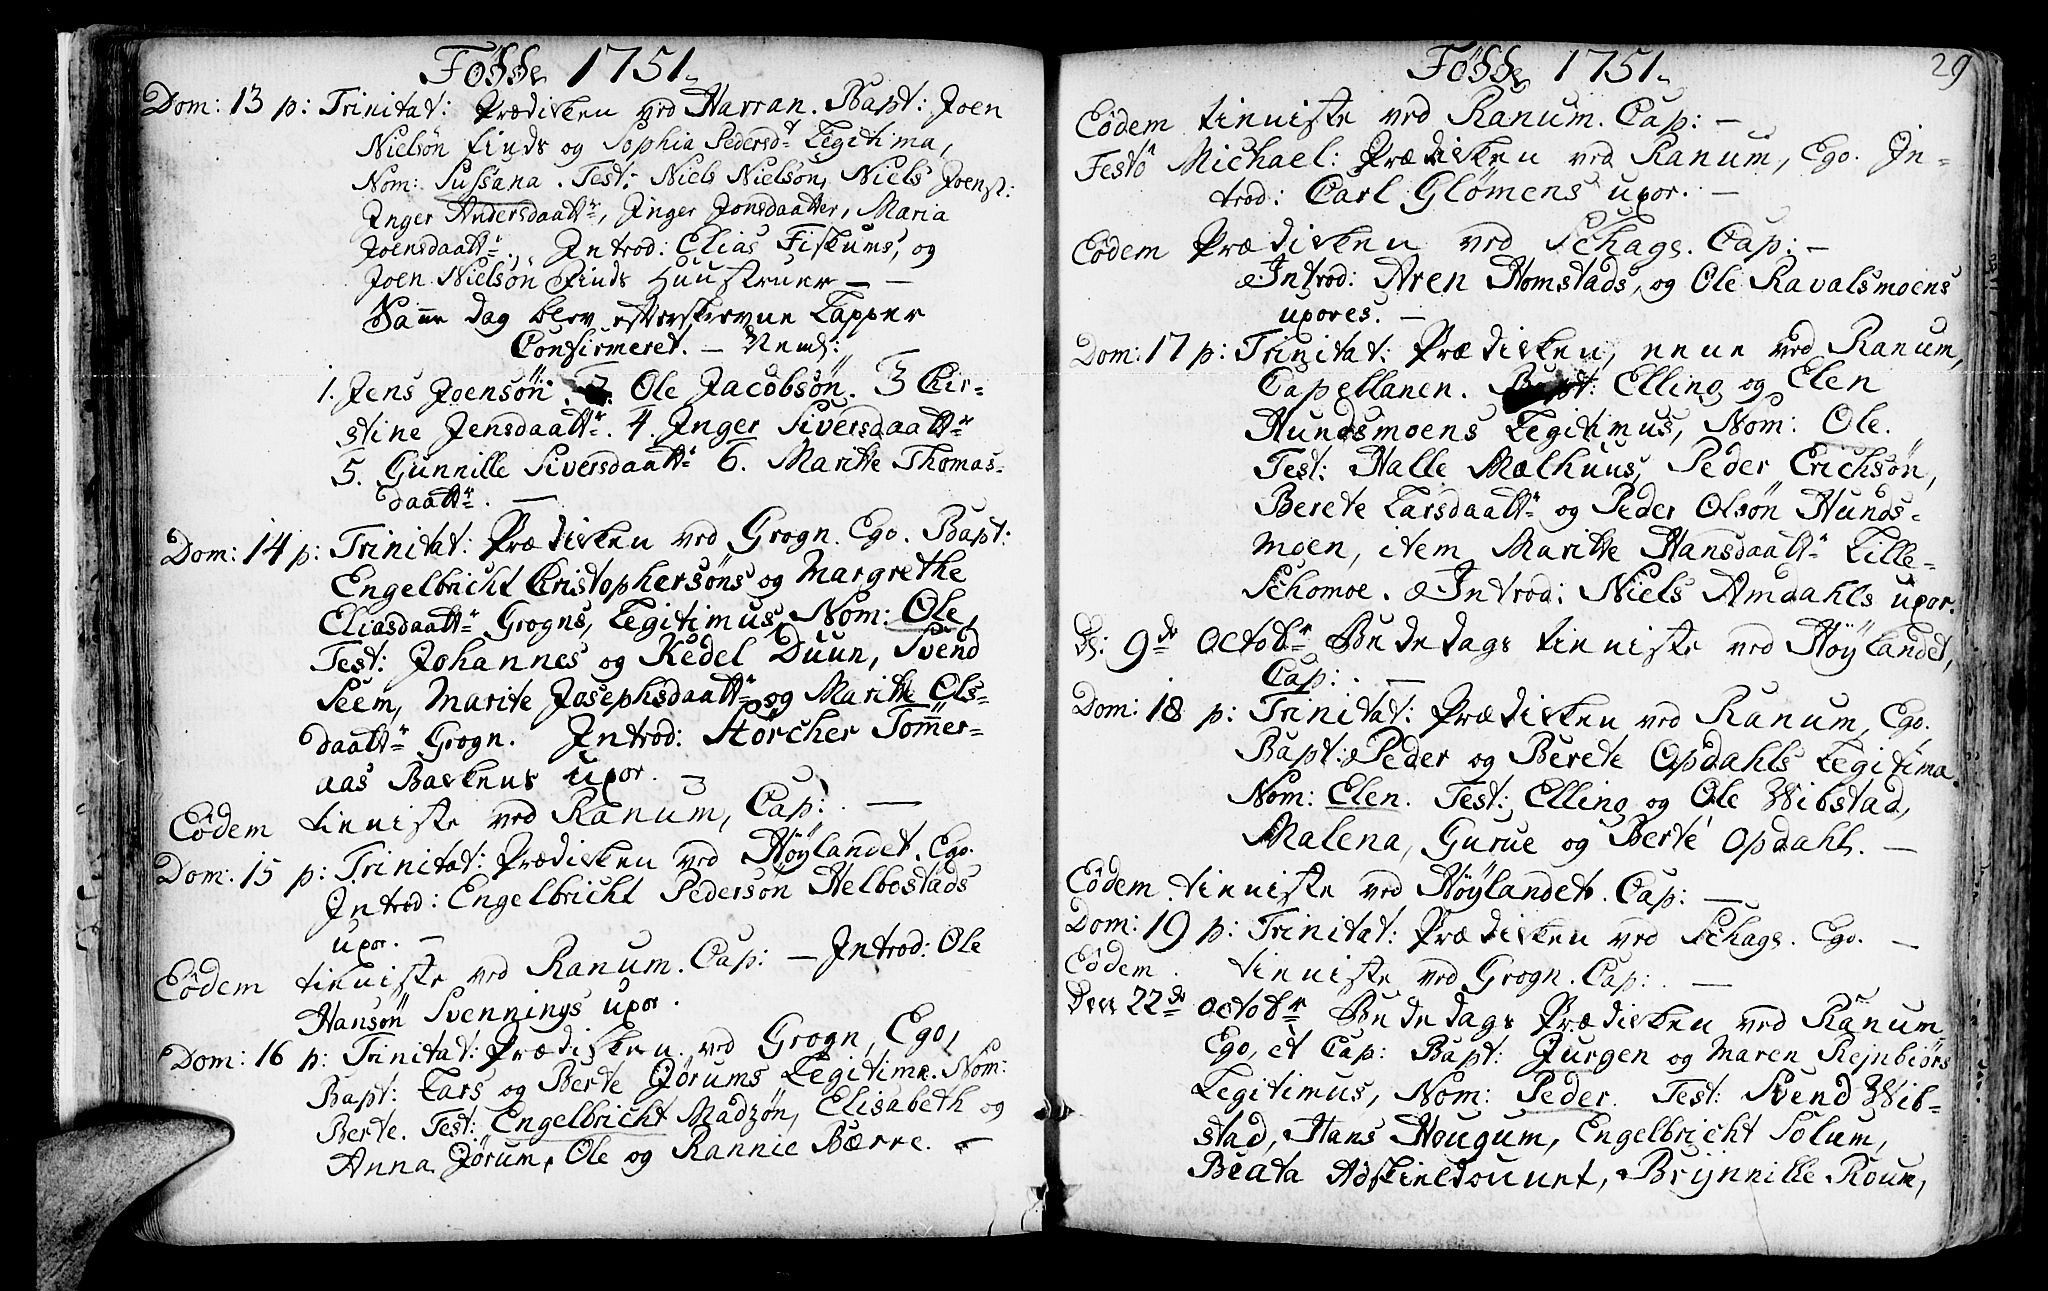 Födde 1751.
Dom: 13 p: Trinitat: Prædiken ved Harran. Bapt: Joen
Nielsön Finds og Sophia Pedersdr Legitima,
Nom: Sussana. Test: Niels Nielsön, Niels Joens:
Inger Andersdaattr, Inger Jonsdaatter, Maria
Joensdaattr. Introd: Elias Fiskums, og
Joen Nielsön Finds Huustruer —
Samme dag blev efterskrevne Lapper
Confirmeret. — Neml:
1. Jens Joensön. 2. Ole Jacobsön. 3 Chir-
stine Jensdaattr. 4. Inger Siversdaattr
5. Gunnille Siversdaattr 6. Maritte Thomas-
daattr. —
Dom: 14 p: Trinitat: Prædiken ved Grogn. Ego. Bapt:
Engelbricht Cristophersöns og Margrethe
Eliasdaattr Grogns, Legitimus, Nom: Ole,
Test: Johannes og Kedel Duun, Svend
Seem, Marite Josephsdaattr og Maritte Ols-
daattr Grogn. Introd: Störcher Tömmer-
aas Baskens uxor. —
Eôdem tienniste ved Ranum, Cap: —
Dom: 15 p: Trinitat: Prædiken ved Höylandet. Ego.
Introd: Engelbricht Pedersön Helbostads
uxor. —
Eôdem tieniste ved Ranum. Cap: — Introd: Ole
Hansön Svennings uxor.
Dom: 16 p: Trinitat: Prædiken ved Grogn, Ego,
Bapt: Lars og Berte Jörums Legitima. Nom:
Berte. Test: Engelbricht Madzön, Elisabeth og
Anna Jörum, Ole og Rannie Bærre. —
Födde 1751.
29
Eôdem tienniste ved Ranum. Cap: —
Festô Michael: Prædiken ved Ranum, Ego. In-
trod: Carl Glömens uxor. —
Eôdem Prædiken ved Schags. Cap: —
Introd: Aren Homstads, og Ole Ravalsmoens
uxores. —
Dom: 17 p: Trinitat: Prædiken, nene ved Ranum,
Capellanen. Bapt: Elling og Elen
Hundsmoens Legitimus, Nom: Ole.
Test: Halle Mælhuus, Peder Erichsön,
Berete Larsdaattr og Peder Olsön Hunds-
moen, item Maritte Hansdaattr Lille-
Schomoe. Introd: Niels Amdahls uxor.
D: 9de Octobr Bededags tienniste ved Höylandet,
Cap: —
Dom: 18 p: Trinitat: Prædiken ved Ranum, Ego.
Bapt: Peder og Berete Opdahls Legitima
Nom: Elen. Test: Elling og Ole Wibstad,
Malena, Gurue og Berte Opdahl. —
Eôdem tienniste ved Höylandet. Cap: —
Dom: 19 p: Trinitat: Prædiken ved Schags. Ego. —
Eôdem tienniste ved Grogn. Cap: —
Den 22de Octobr Bededags Prædiken ved Ranum
Ego, et Cap: Bapt: Jurgen og Maren Rejnbiörs
Legitimus, Nom: Peder. Test: Svend Wib-
stad, Hans Hougum, Engelbricht Solum,
Beata Adskieltouuet, Brynnille Roum,